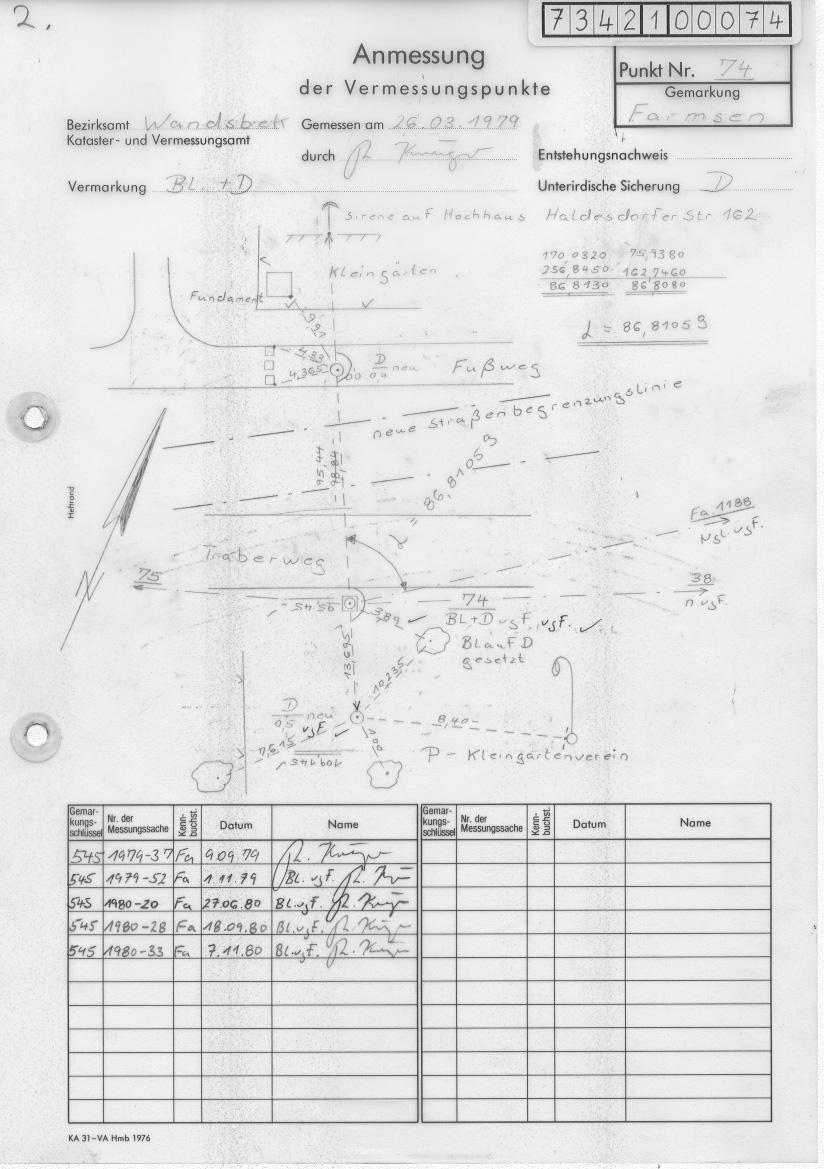 2.
73421 00074
Anmessung
der Vermessungspunkte
Punkt Nr. 74
Gemarkung
Farmsen
Bezirksamt Wandsbek
Kataster- und Vermessungsamt
Gemessen am 26.03.1979
durch
Entstehungsnachweis
Vermarkung BL. + D
Unterirdische Sicherung D
Sirene auf Hochhaus Haldesdorfer Str. 162
170,0320 75,9380
256,8450 162,7460
86,8130 86,8080
α = 86,8105 g
Kleingärten
Fundament
9,91
4,33
4,365
D neu
04
Fußweg
neue Straßenbegrenzungslinie
95,44
98,84
α = 86,8105 g
Heftrand
N
Fa. 1188
Ngl. vgf.
Traberweg
75
38
n. vgf.
95,45
3,89
74
BL + D vgf. vgf.
BL auf D
gesetzt
13,695
10,235
D neu
05 vgf
7,615
109,145
8,40
P - Kleingartenverein
Gemar-
kungs-
schlüssel
Nr. der
Messungssache
Kenn-
buchst.
Datum
Name
Gemar-
kungs-
schlüssel
Nr. der
Messungssache
Kenn-
buchst.
Datum
Name
545 1979-37 Fa 9.09.79
545 1979-52 Fa 1.11.79 Bl. vgf.
545 1980-20 Fa 27.06.80 Bl. vgf.
545 1980-28 Fa 18.09.80 Bl. vgf.
545 1980-33 Fa 7.11.80 Bl. vgf.
KA 31-VA Hmb 1976